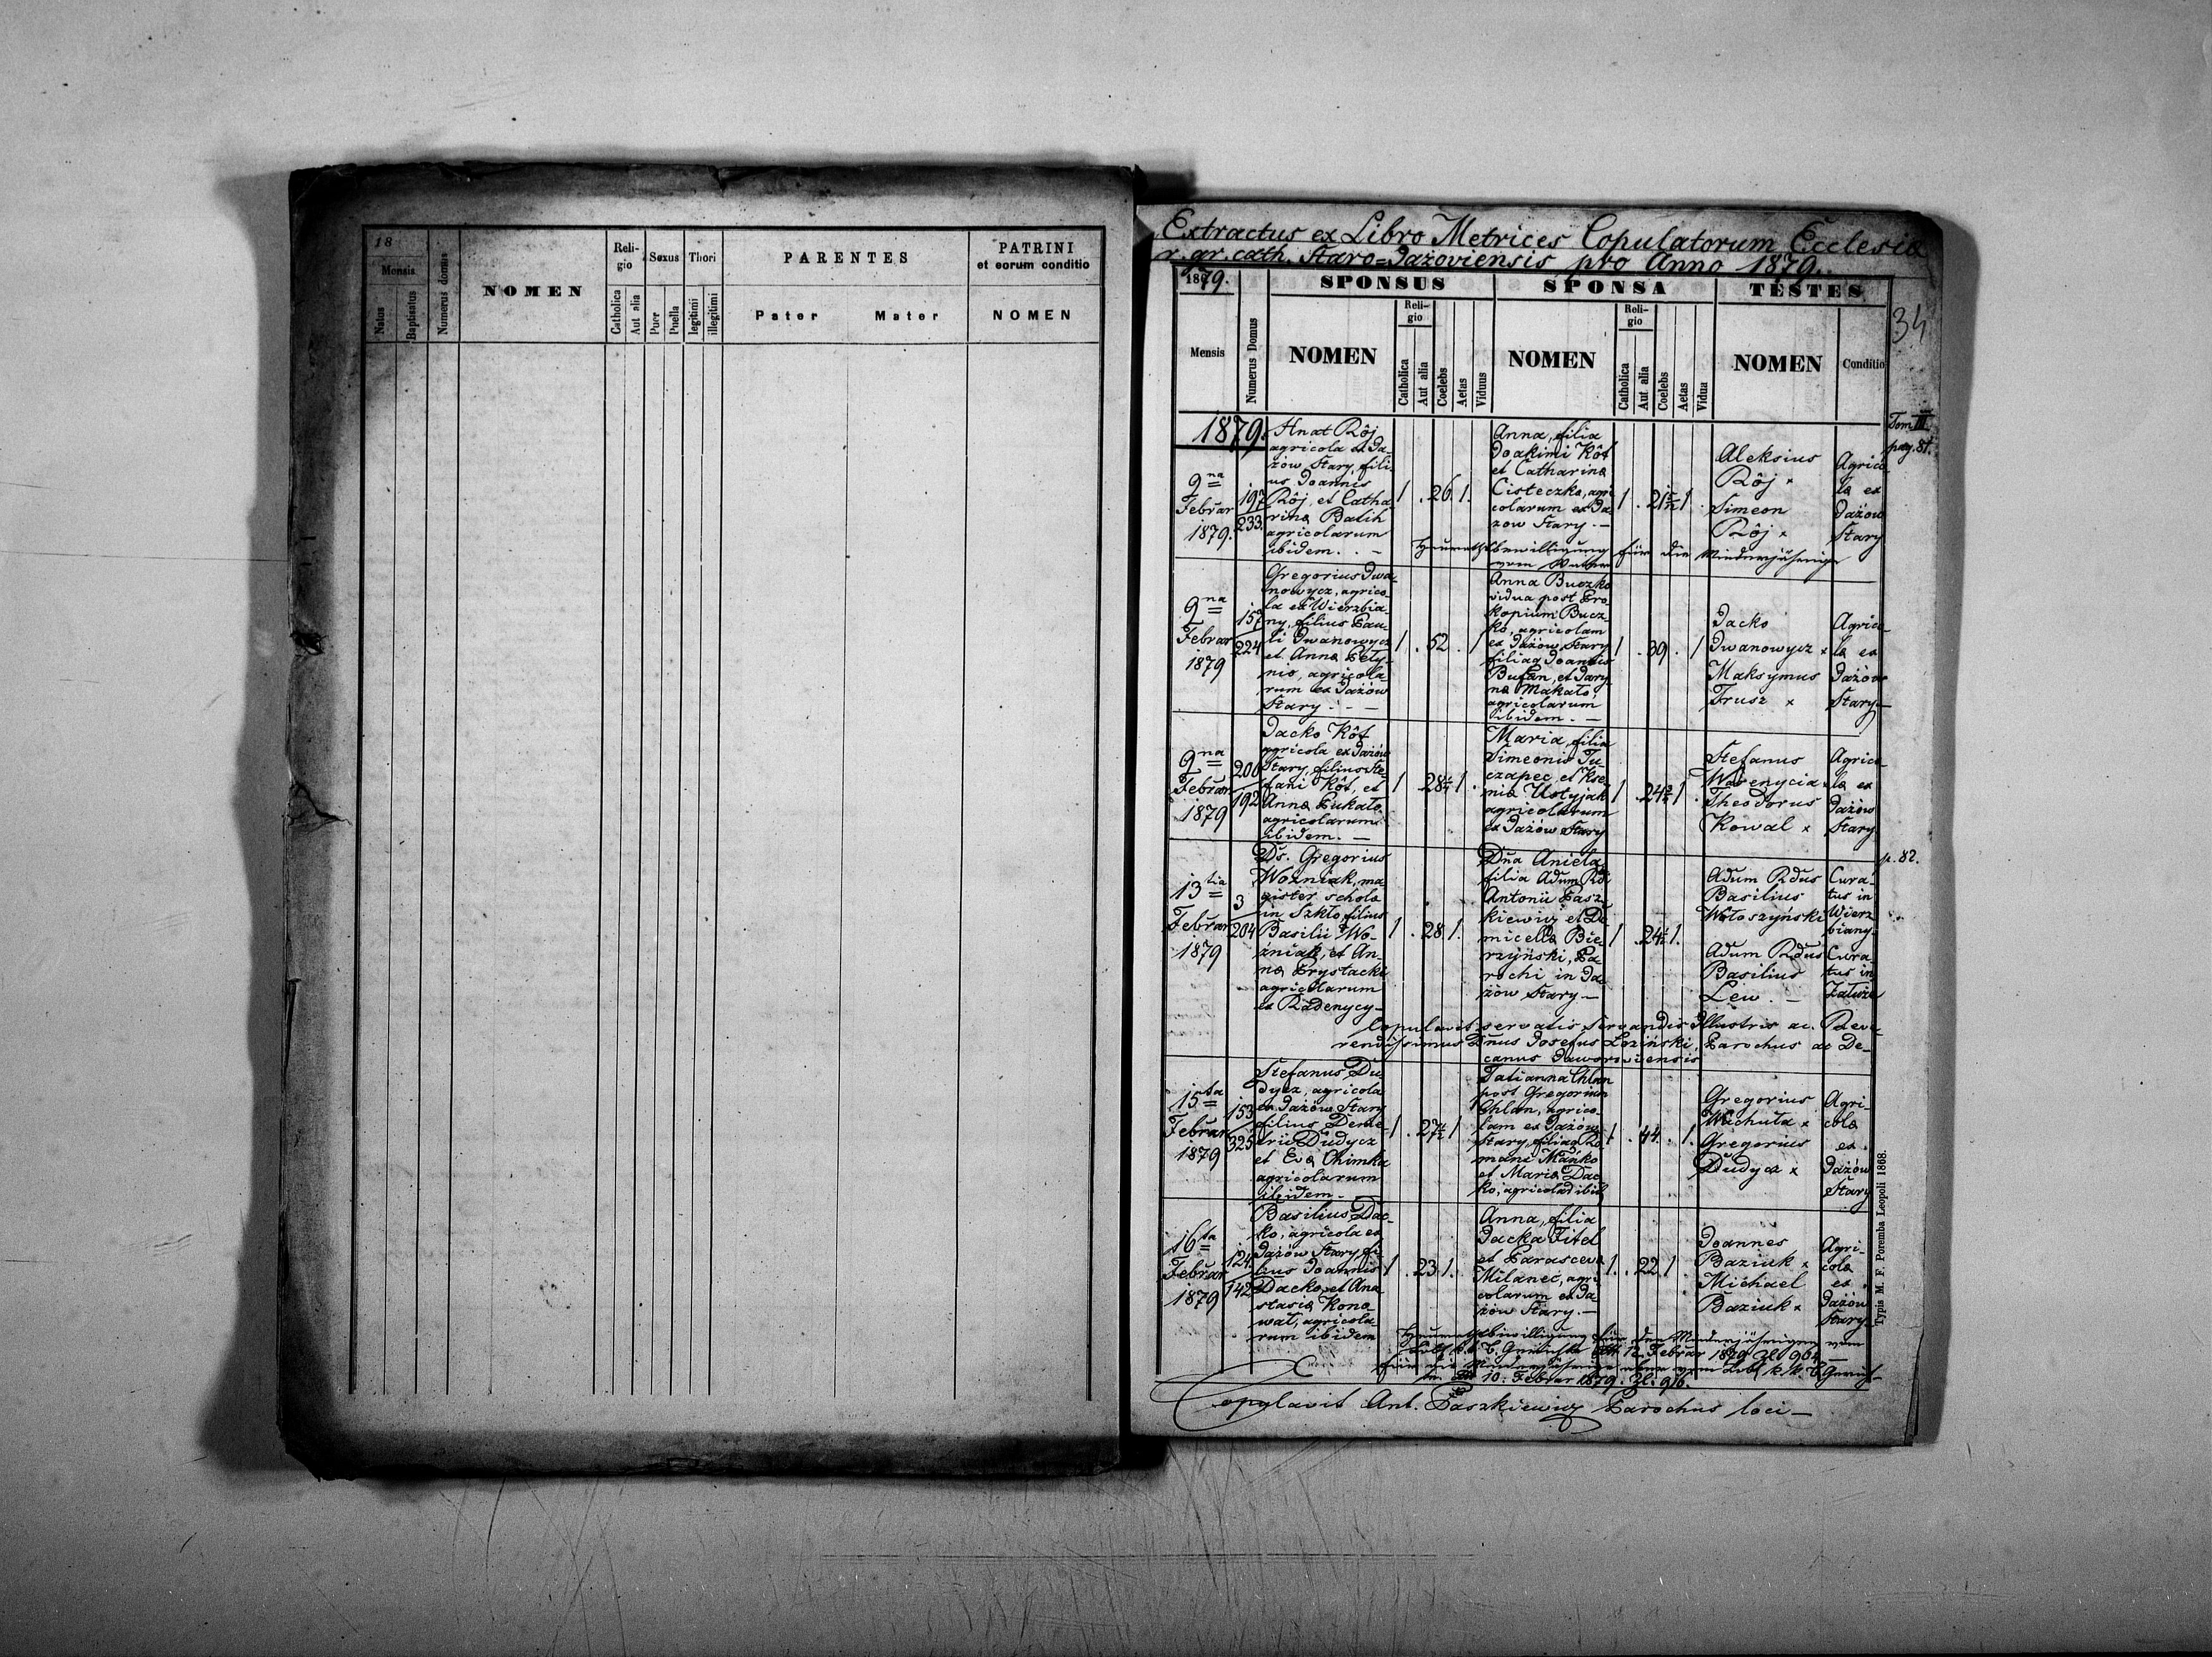 18
Mensis
Natus
Baptisatus
Numerus domus
NOMEN
Reli-
gio
Catholica
Aut alia
Sexus
Puer
Puella
Thori
legitimi
illegitimi
PARENTES
Pater Mater
PATRINI
et eorum conditio
NOMEN
Extractus ex Libro Metrices Copulatorum Ecclesiæ
r. gr. cath. Staro=Jażoviensis pro Anno 1879.
34
1879.
Mensis
Numerus Domus
SPONSUS
NOMEN
Reli-
gio
Catholica
Aut alia
Coelebs
Aetas
Viduus
SPONSA
NOMEN
Reli-
gio
Catholica
Aut alia
Coelebs
Aetas
Vidua
TESTES
NOMEN
Conditio
Tom III
pag. 81.
1879.
9na
Februar
1879.
197
233.
Hnat Rôj
agricola ex Ja-
żów Stary, fili-
us Joannis
Rôj, et Catha
rina Balih
agricolarum
ibidem. . –
26
Anna, filia
Joakimi Kôt
et Catharina
Cisteczko, agri
colarum ex Ja
zow Stary. –
Aleksius
Rôj ×
Simeon
Rôj ×
Agrico-
la ex
Jażów
Stary
Heurathsbewilligung für die Minderjährige
vom Vater
9na
Februar
1879
157
224
Gregorius Iwa-
nowycz, agrico-
la ex Wierzbia-
ny, filius Pau-
li Iwanowycz
et Anna
agricola-
rum ex Jażów
Stary. - –
52
Anna Buczko
vidua post Pro-
kopium Bucz-
ko, agricolam
ex Jażów Stary
filiaq Joannis
et Jary-
na Makało,
agricolarum
ibidem. –
39
Jacko
Iwanowycz ×
Maksymus
Frusz ×
Agrico-
la ex
Jażów
Stary –
9na
Februar
1879
206
192
Jacko Kôt
agricola ex Jażów
Stary, filius Ste-
fani Kôt, et
Anna Łukało
agricolarum
ibidem. –
28
Maria, filia
Simeonis Tu-
czapec, et Kse-
nia Ustyjak
agricolarum
ex Jażów Stary
24
Stefanus
Warenycia ×
Theodorus
Kowal ×
Agrico-
la ex
Jażów
Stary
p. 82.
13tia
Februar
1879
3
204
Ds. Gregorius
Wożniak, ma
gister schola
in Szkło, filius
Basilii Wo-
żniak, et An-
na Prystacki
agricolarum
ex Rodenycy –
28
Dna Aniela
filia Adum Rdi
Antonii Pasz-
kiewicz et Do
micella Bie-
rzyński, Pa-
rochi in Ja
żów Stary –
24
Adum Rdus
Basilius
Włoszyński
Adum Rdus
Basilius
Lew. –
Cura-
tus in
Wierz
biany
Cura-
tus in
Załuże
Copulavit servatis servandis Illustris ac Reve-
rendissimus Dnus Josefus Łoziński, Parochus ac De-
canus Jaworoviensis
15ta
Februar
1879
153
325
Stefanus Du
dycz, agricola
ex Jażów Stary
filius Deme-
trii Dudycz
et Eva Chimka
agricolarum
ibidem –
27
Tatianna Chlan
post Gregorium
Chlan, agrico-
lam ex Jażów
Stary, filiaq Ro
mani Mańko
et Maria Dac
ko, agricolarum ibid
44
Gregorius
Wichuta ×
Gregorius
Dudycz ×
Agri-
cola
ex
Jażów
Stary
16ta
Februar
1879
124
142
Basilius Dac-
ko, agricola ex
Jażów Stary, fi-
lius Joannis
Dacko, et Ana
stasia Kono
wał, agricola-
rum ibidem
23
Anna, filia
Jacka Fitel
et Parasceva
Milaneć, agri
colarum ex Ja
żów Stary. –
22
Joannes
Baziuk ×
Michael
Baziuk ×
Agri-
cola
ex
Jażów
Stary.
Heurathsbewilligung für den Minderjährigen vom
Löbl. k. k. B. Gerichte 12. Februar 1879 Zl. 964
für die Minderjährige aber vom Löbl. k. k. B. Gerich-
te 10. Februar 1879. Zl. 916.
Copulavit Ant. Paszkiewicz Parochus loci –
Typis M. F. Poremba Leopoli 1868.